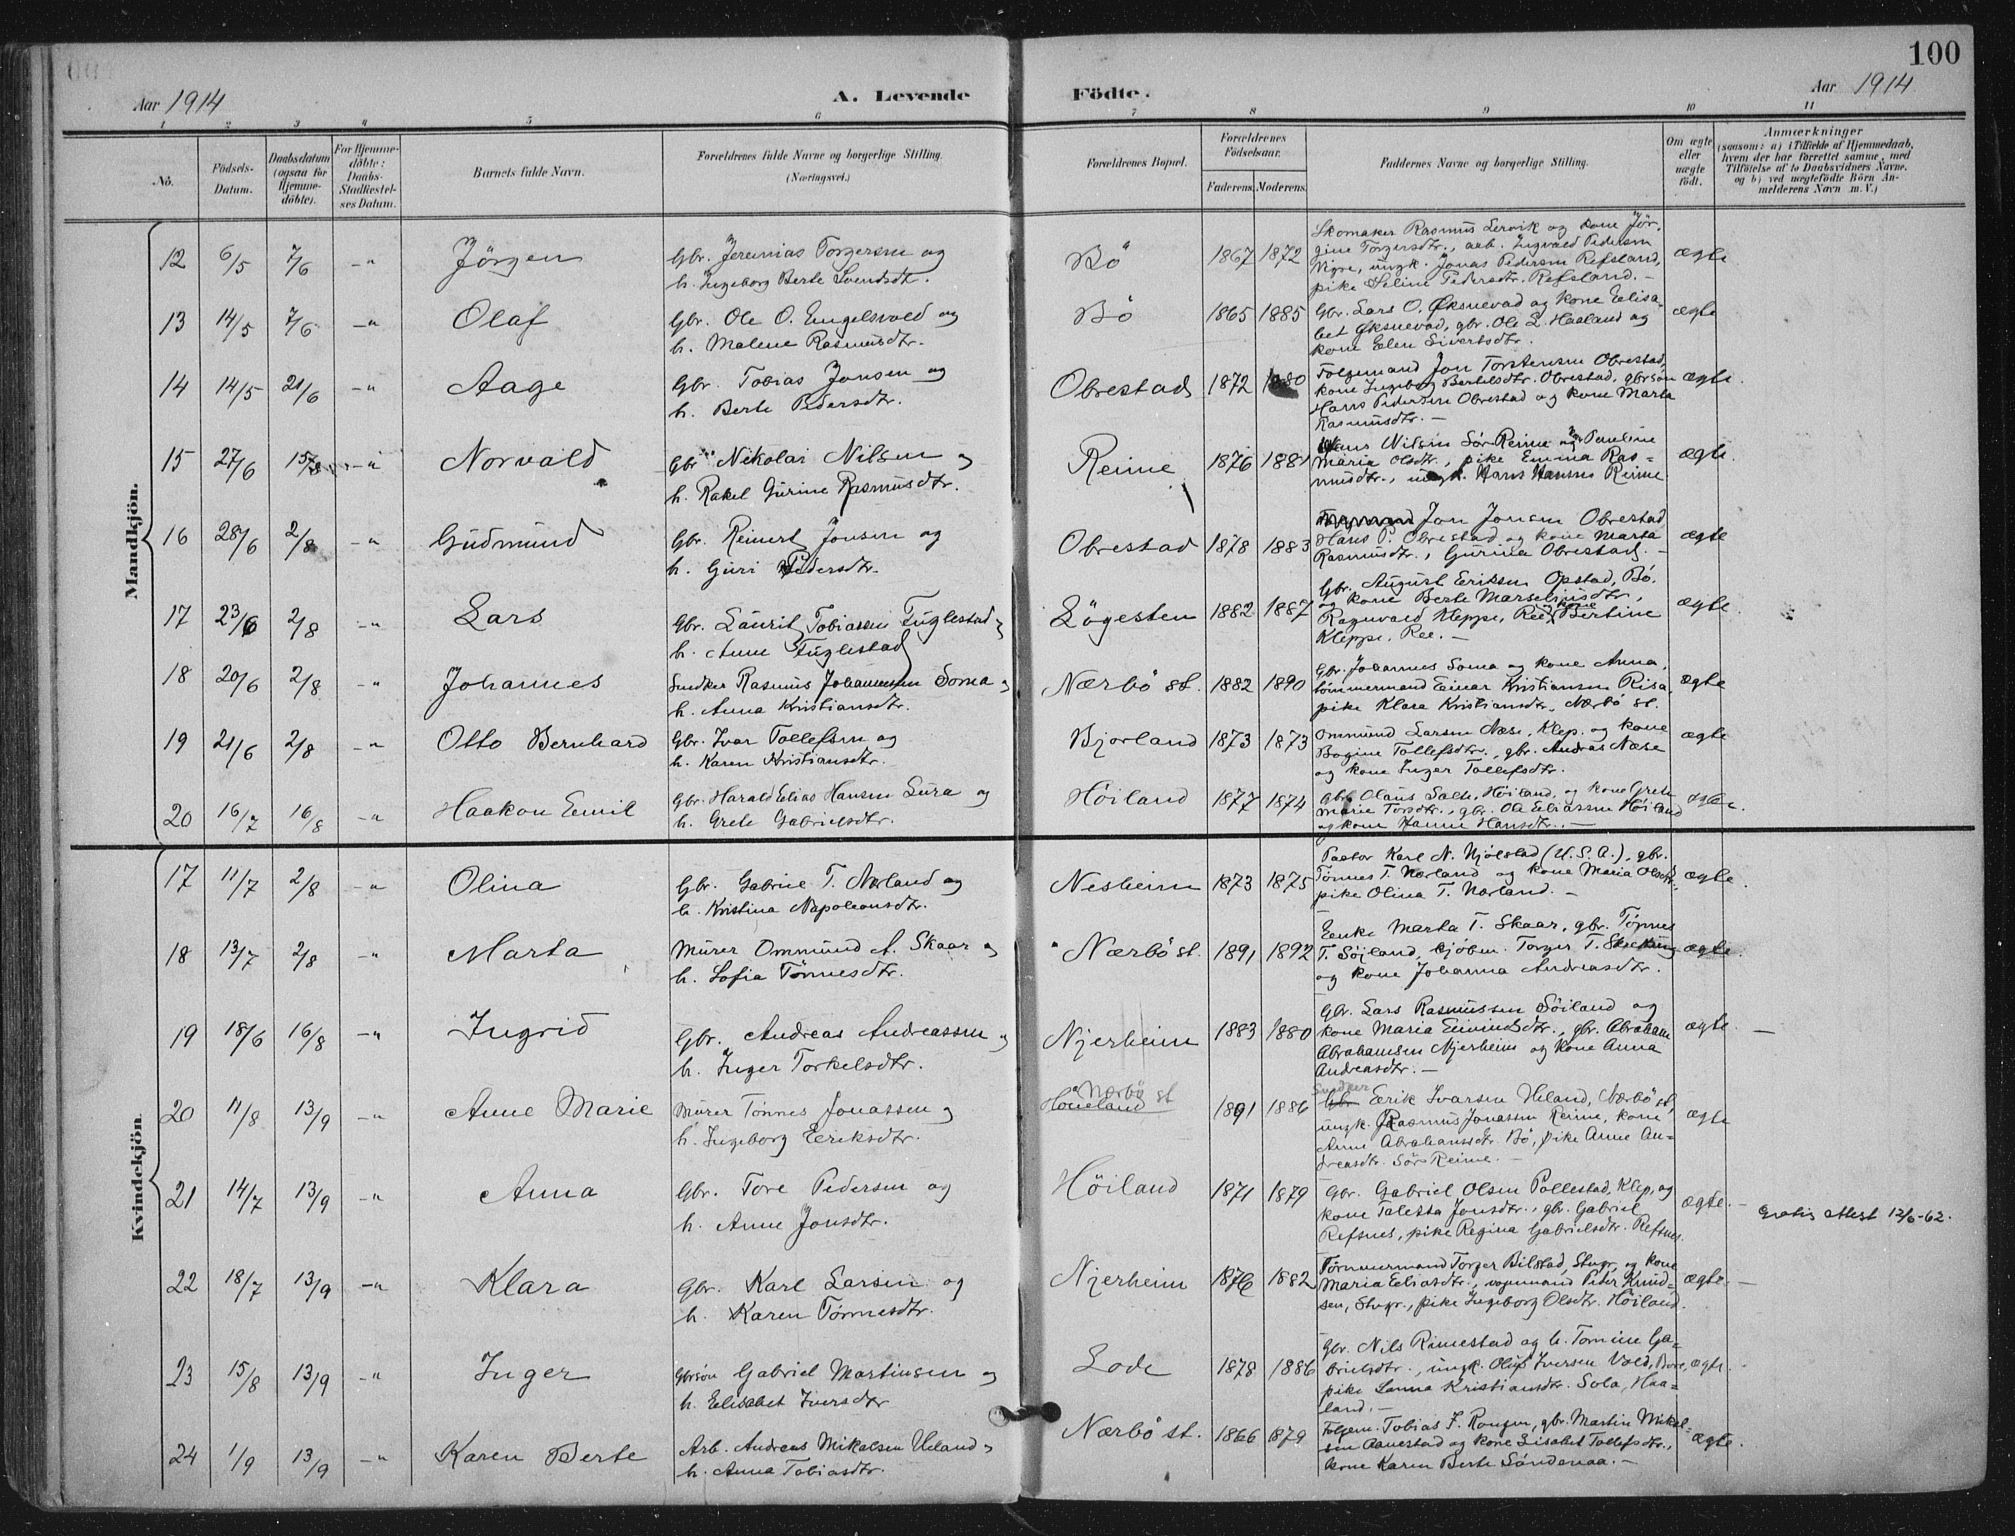 100
Aar 1914
A. Levende Födte.
Aar 1914
1 2 3 4 5 6 7 8 9 10 11
No.
Födsels-Datum.
Daabsdatum (ogsaa for Hjemme-döbte).
For Hjemme-döbte: Daabs-Stadfæstel-ses Datum.
Barnets fulde Navn.
Forældrenes fulde Navne og borgerlige Stilling.
(Næringsvei.)
Forældrenes Bopæl.
Forældrenes Födselsaar.
Faderens. Moderens.
Faddernes Navne og borgerlige Stilling.
Om ægte eller uægte födt.
Anmærkninger
(saasom: a) i Tilfælde af Hjemmedaab,
hvem der har forrettet samme, med
Tilföielse af to Daabsvidners Navne,
og b) ved uægtefödte Börn An-
melderens Navn m. V.)
Mandkjön.
12 6/5 7/6 -"- Jörgen
Gbr. Jeremias Torgersen og
h. Ingeborg Berte Svendsdtr.
Bö 1867 1872
Skomaker Rasmus Lervik og kone Jör-
gine Torgersdtr., arb. Ingvald Pedersen
Nigre, ungk. Jonas Pedersen Refsland,
pike Seline Pedersdtr. Refsland. -
ægte
13 14/5 7/6 -"- Olaf
Gbr. Ole O. Engelsvold og
h. Malene Rasmusdtr.
Bö 1865 1885
Gbr. Lars O. Øksnevad og kone Elisa-
bet Øksnevad, gbr. Ole L. Haaland og
kone Elen Sivertsdtr.
ægte
14 14/5 21/6 -"- Aage
Gbr. Tobias Jonsen og
h. Berte Pedersdtr.
Obrestad 1872 1880
Folgemand Jon Torstensen Obrestad,
kone Ingeborg Bertelsdtr. Obrestad, gbrsøn
Hans Pedersen Obrestad og kone Marta
Rasmusdtr. -
ægte.
15 27/6 15/8 -"- Norvald
Gbr. Nikolai Nilsen og
h. Rakel Gurine Rasmusdtr.
Reime 1876 1881
Nilsen Sör-Reime og Pauline
Maria Olsdtr., pike Emma Ras-
musdtr., ungk. Hans Hansen Reime
ægte.
16 28/6 2/8 -"- Gudmund
Gbr. Reinert Jonsen og
h. Guri Pedersdtr.
Obrestad 1878 1883
Jon Jonsen Obrestad
Hans P. Obrestad og kone Marta
Rasmusdtr., Gurina Obrestad. -
ægte
17 23/6 2/8 -"- Lars
Gbr. Laurit Tobiassen Fuglestad og
h. Anne Fuglestad
Lögesten 1882 1887
Gbr. August Eriksen Opstad, Bö,
og kone Berte Marseliusdtr.,
Ragnvald Kleppe, Ree, og kone Bertine
Kleppe, Ree. -
ægte.
18 20/6 2/8 -"- Johannes
Snedker Rasmus Johannessen Soma og
h. Anna Kristiansdtr.
Nærbö st. 1882 1890
Gbr. Johannes Soma og kone Anna,
tömmermand Einar Kristiansen Risa,
pike Klara Kristiansdtr, Nærbö st.
ægte
19 21/6 2/8 -"- Otto Bernhard
Gbr. Ivar Tollefsen og
h. Karen Kristiansdtr.
Bjorland 1873 1873
Ommund Larsen Næse, Klep, og kone
Bogine Tollefsdtr., gbr. Andreas Næse
og kone Inger Tollefsdtr.
ægte
20 16/7 16/8 -"- Haakon Emil
Gbr. Harald Elias Hansen Lura og
h. Grete Gabrielsdtr.
Höiland 1877 1874
Gbr. Olaus Salte, Höiland, og kone Grete
Marie Torsdtr., gbr. Ole Eliassen Höiland
og kone Hanne Hansdtr. -
ægte.
Kvindekjön
17 11/7 2/8 -"- Olina
Gbr. Gabriel T. Nærland og
h. Kristina Napoleonsdtr.
Nesheim 1873 1875
Pastor Karl N. Njölstad (U.S.A.), gbr.
Tönnes T. Nærland og kone Maria Olsdtr.,
pike Olina T. Nærland. -
ægte.
18 13/7 2/8 -"- Marta
Murer Ommund A. Skaar og
h. Sofia Tönnesdtr.
Nærbö st. 1891 1892
Enke Marta T. Skaar, gbr. Tönnes
T. Söiland, kjöbm. Torger T.
og kone Johanna Andreasdtr.
ægte.
19 18/6 16/8 -"- Ingrid
Gbr. Andreas Andreassen og
h. Inger Torkelsdtr.
Njerheim 1883 1880
Gbr. Lars Rasmussen Söiland og
kone Maria Eivindsdtr., gbr. Abraham
Abrahamsen Njerheim og kone Anna
Andreasdtr. -
ægte. -
20 11/8 13/9 -"- Anne Marie
Murer Tönnes Jonassen og
h. Ingeborg Eriksdtr.
Nærbö st
Höneland 1891 1886
Snedker
Gbr. Erik Ivarsen Ueland, Nærbö st,
ungk. Rasmus Jonassen Reime, kone
Anne Abrahamsdtr. Bö, pike Anne An-
dreasdtr. Sör-Reime. -
ægte
21 14/7 13/9 -"- Anna
Gbr. Tore Pedersen og
h. Anne Jonsdtr.
Höiland 1871 1879
Gbr. Gabriel Olsen Pollestad, Klep, og
kone Taletta Jonsdtr., gbr. Gabriel
Refsnes, pike Regina Gabrielsdtr. Refsnes.
ægte. - Gratis attest 12/6-62.
22 18/7 13/9 -"- Klara
Gbr. Karl Larsen og
h. Karen Tönnesdtr.
Njerheim 1876 1882
Tömmermand Torger Bilstad, Stvgr, og kone
Maria Eliasdtr., vognmand Peder Knud-
sen, Stvgr., pike Ingeborg Olsdtr. Höiland.
ægte. -
23 15/8 13/9 -"- Inger
Gbrsön Gabriel Martinsen og
h. Elisabet Iversdtr
Lode 1878 1886
Gbr. Nils Rimestad og h. Tomine Ga-
brielsdtr., ungk. Oluf Iversen Vold, Bore,
pike Lanna Kristiansdtr. Sola, Haa-
land. -
ægte.
24 1/9 13/9 -"- Karen Berte
Arb. Andreas Mikalsen Ueland og
h. Anna Tobiasdtr.
Nærbö st. 1866 1879
Folgem. Tobias J. Rongen, gbr. Martin Mikal-
sen Aanestad og kone Lisabet Tollefsdtr.,
kone Karen Berte Söndenaa. -
ægte.